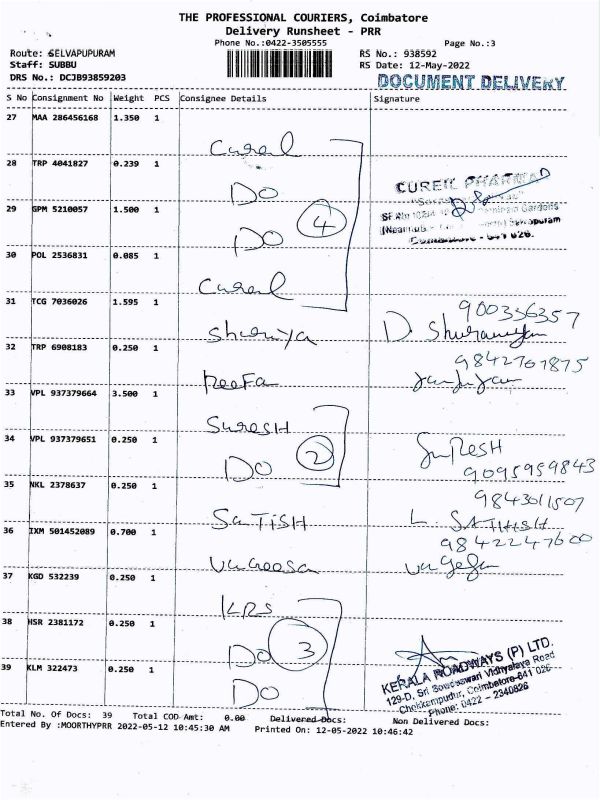 THE PROFESSIONAL COURIERS, Coimbatore
Delivery Runsheet - PRR
Phone No.:0422-3505555 Page No.:3
Route: SELVAPUPURAM RS No.: 938592
Staff: SUBBU RS Date: 12-May-2022
DRS No.: DCJB93859203
DOCUMENT DELIVERY
S No Consignment No Weight PCS Consignee Details Signature
27 MAA 286456168 1.350 1
Cureal
28 TRP 4041827 0.239 1
DO
CUREIL PHARMA
29 GPM 5210057 1.500 1
DO
4
30 POL 2536831 0.085 1
Cureal
31 TCG 7036026 1.595 1
Shuriya
900336357
D.
32 TRP 6908183 0.250 1
ReeFa
9842701875
33 VPL 937379664 3.500 1
SureSH
34 VPL 937379651 0.250 1
DO
2
SuReSH
9095959843
35 NKL 2378637 0.250 1
SaTISH
9843011507
L SATHISH
36 IXM 501452089 0.700 1
9842247600
37 KGD 532239 0.250 1
KRS
38 HSR 2381172 0.250 1
DO
3
39 KLM 322473 0.250 1
DO
KERALA ROADWAYS (P) LTD.
129-D, Sri Sowdeswari Vidhyalaya Road
Chokkampudur, Coimbatore-641 026
Phone: 0422 - 2340826
Total No. Of Docs: 39 Total COD Amt: 0.00 Delivered Docs: Non Delivered Docs:
Entered By :MOORTHYPRR 2022-05-12 10:45:30 AM Printed On: 12-05-2022 10:46:42